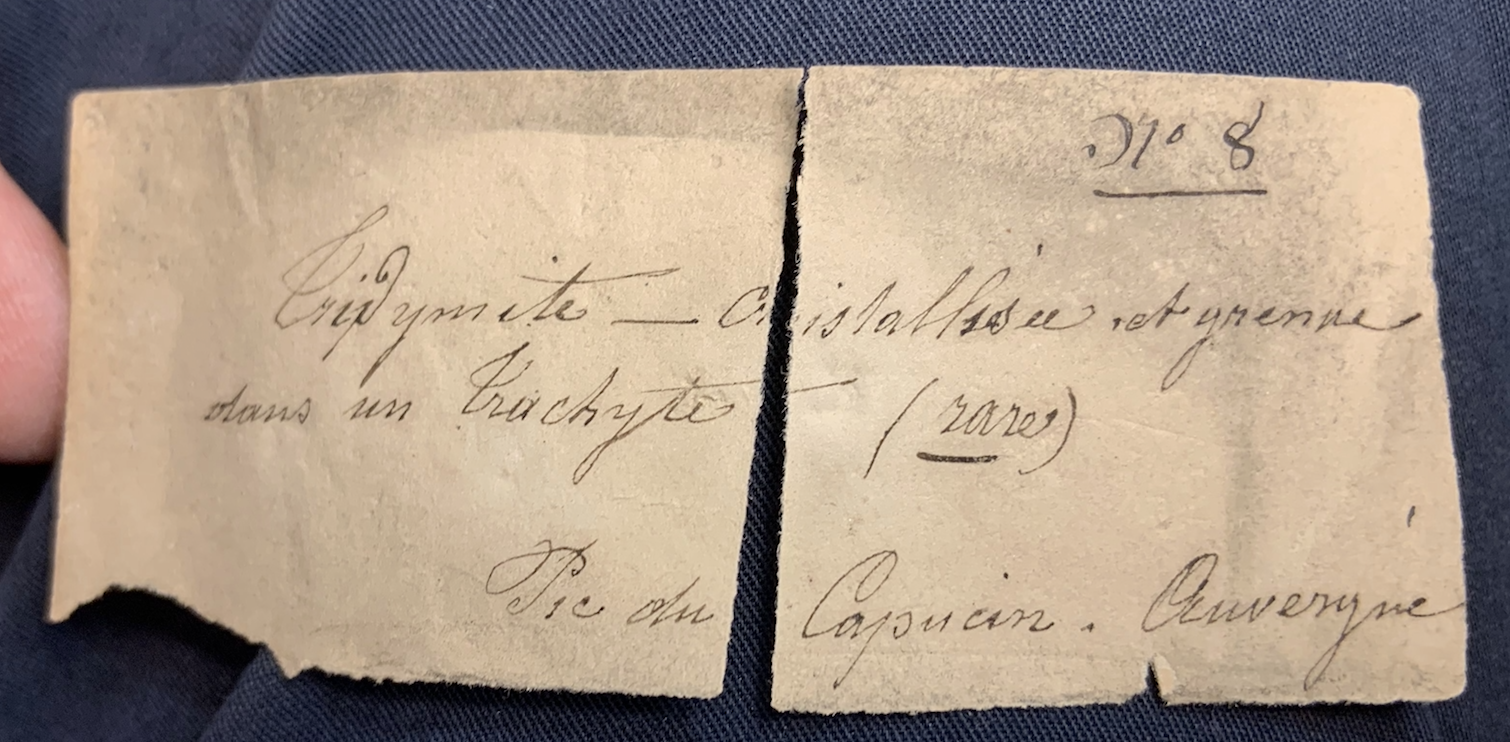 No 8
Tridymite — cristallisée et grenue
dans un Trachyte (rare)
Pic du Capucin. Auvergne